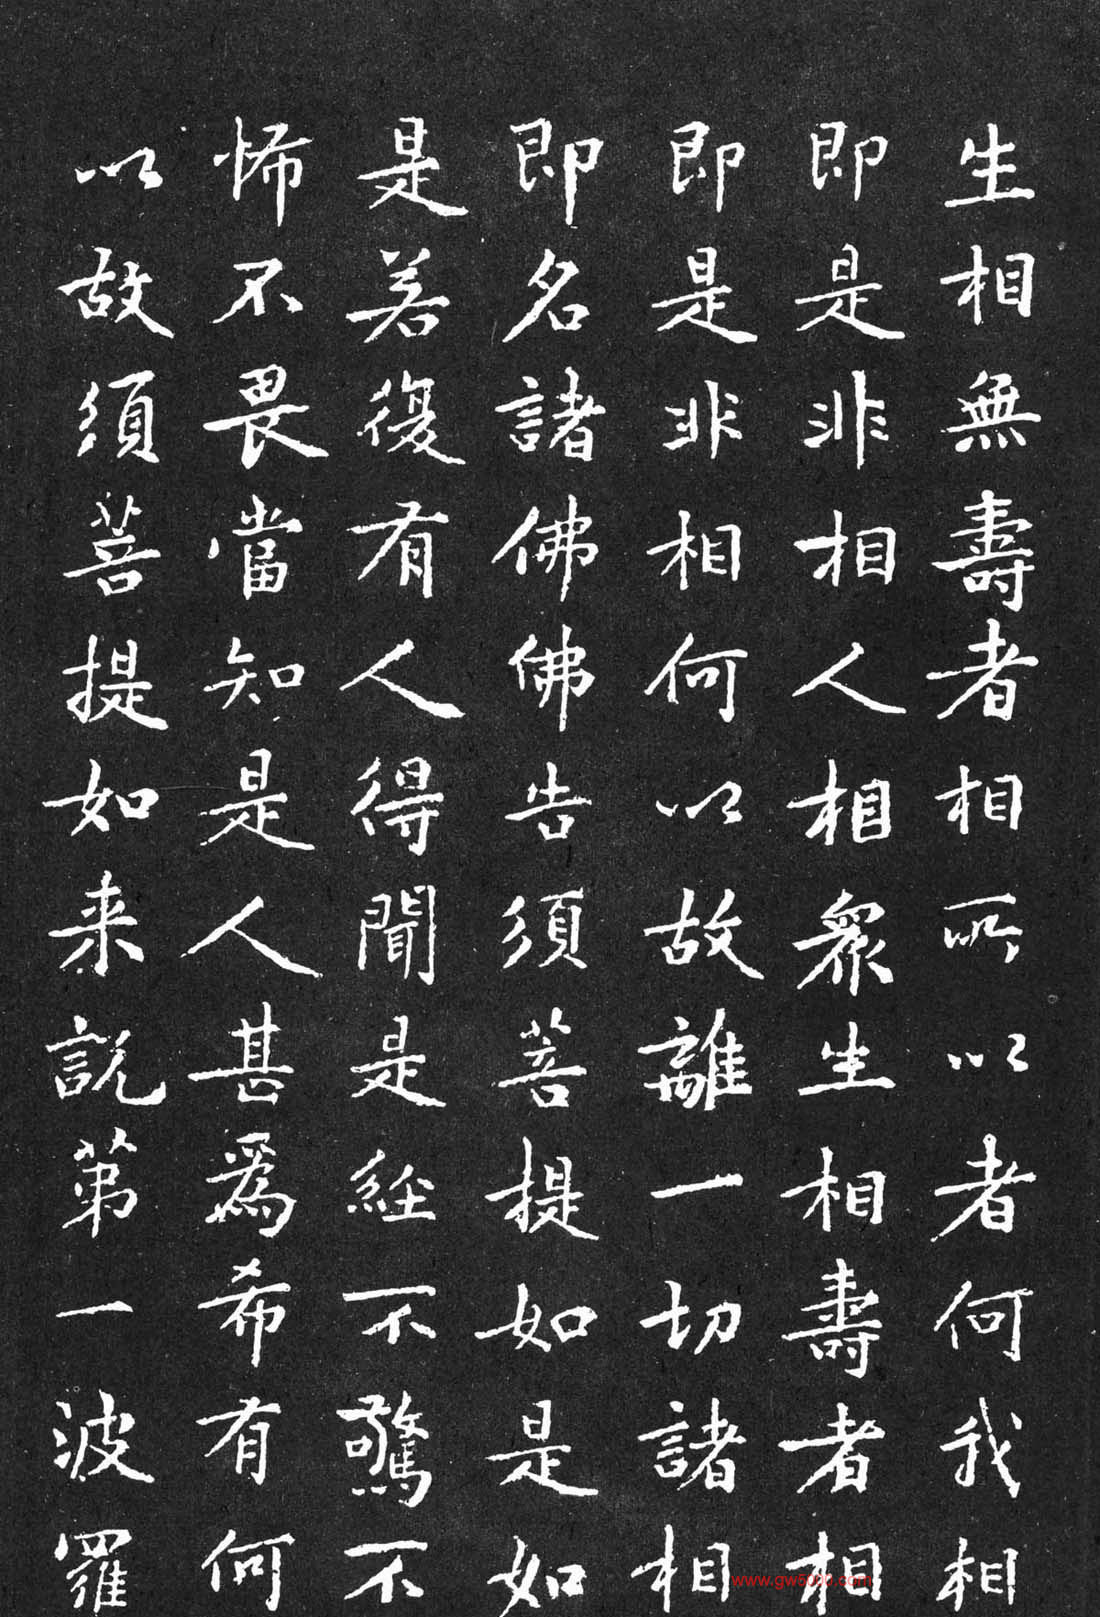 生相無壽者相所以者何我相
即是非相人相眾生相壽者相
即是非相何以故離一切諸相
即名諸佛佛告須菩提如是如
是若復有人得聞是經不驚不
怖不畏當知是人甚為希有何
以故須菩提如来說第一波羅
www.gw5000.com